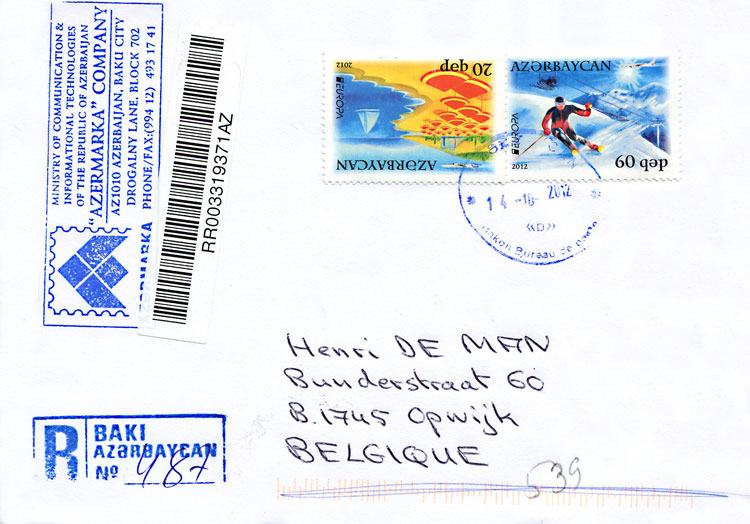 MINISTRY OF COMMUNICATION &
INFORMATIONAL TECHNOLOGIES
OF THE REPUBLIC OF AZERBAIJAN
"AZERMARKA" COMPANY
AZ1010 AZERBAIJAN, BAKU CITY
DROGALNY LANE, BLOCK 702
PHONE/FAX:(994 12) 493 17 41
RR003319371AZ
AZƏRBAYCAN
EUROPA
2012
20 qəp
AZƏRBAYCAN
EUROPA
2012
60 qəp
* 14-10-2012 *
«D»
Bureau de
Henri DE MAN
Bunderstraat 60
B.1745 Opwijk
BELGIQUE
R
BAKI
AZƏRBAYCAN
№ 487
539